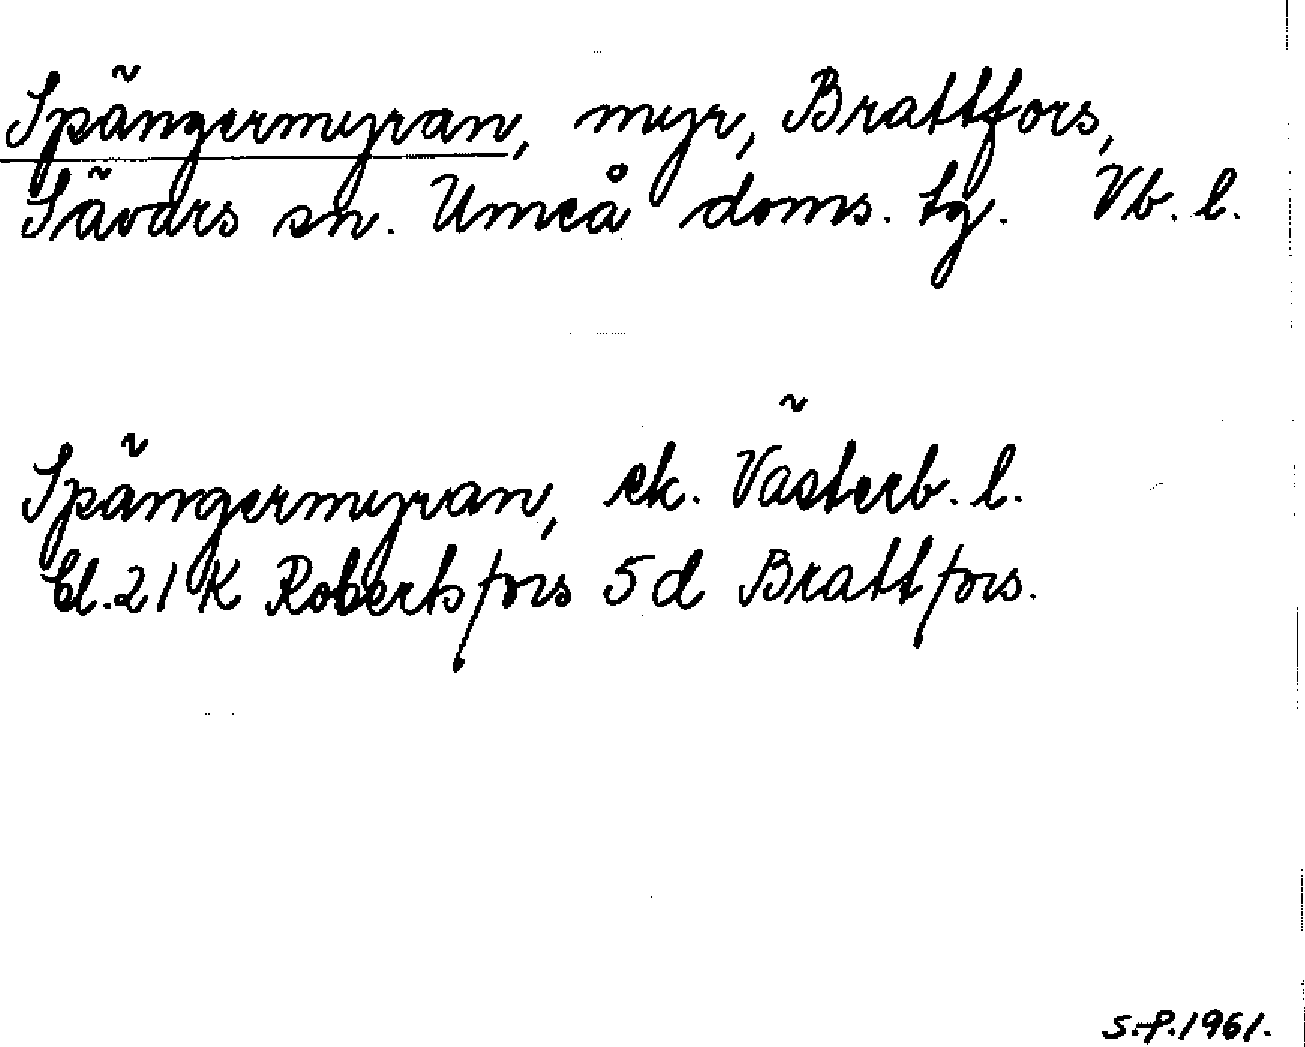 Spängermyran, myr, Brattfors,
Sävars sn. Umeå doms. tg. Vb. l.
Spängermyran, ek. Västerb. l.
bl. 21 K Robertsfors 5d Brattfors.
S.-P. 1961.